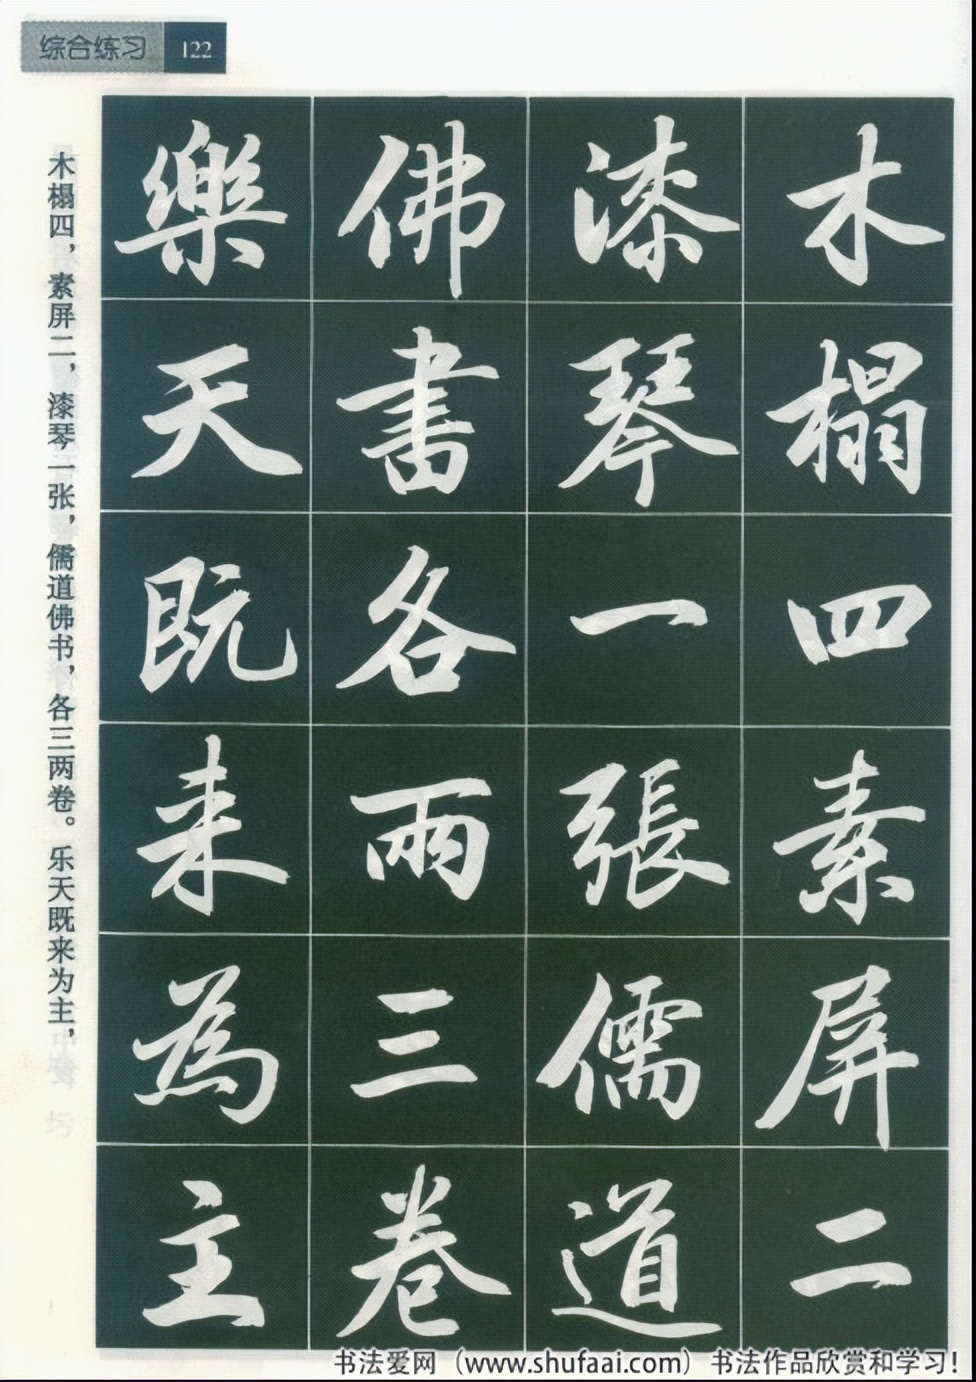 综合练习 122
木榻四素屏二
漆琴一張儒道
佛書各兩三卷
樂天既来為主
木榻四，素屏二，漆琴一张，儒道佛书，各三两卷。乐天既来为主，
书法爱网（www.shufaai.com）书法作品欣赏和学习！